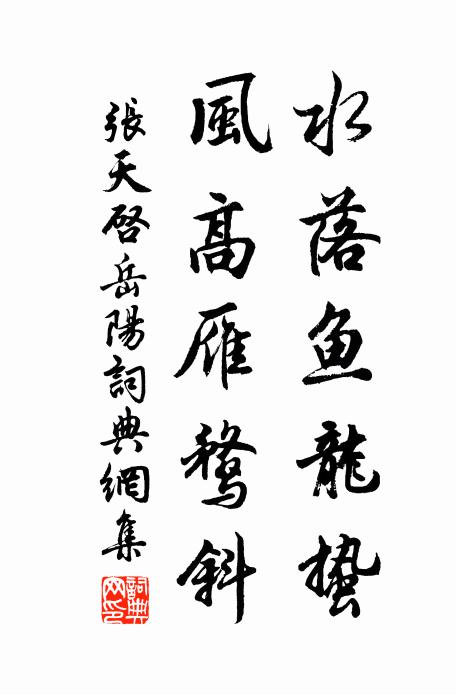 水落鱼龍蟄
風高雁鶩斜
張天啓岳陽詞典網集
詞典网印